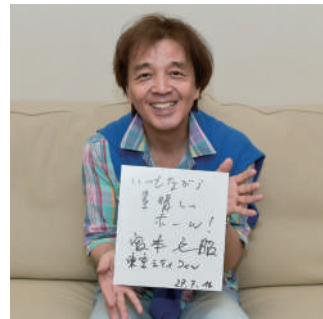 いつもながら
素晴しい
ホール!
宮本文昭
東京シティフィル
28.7.16